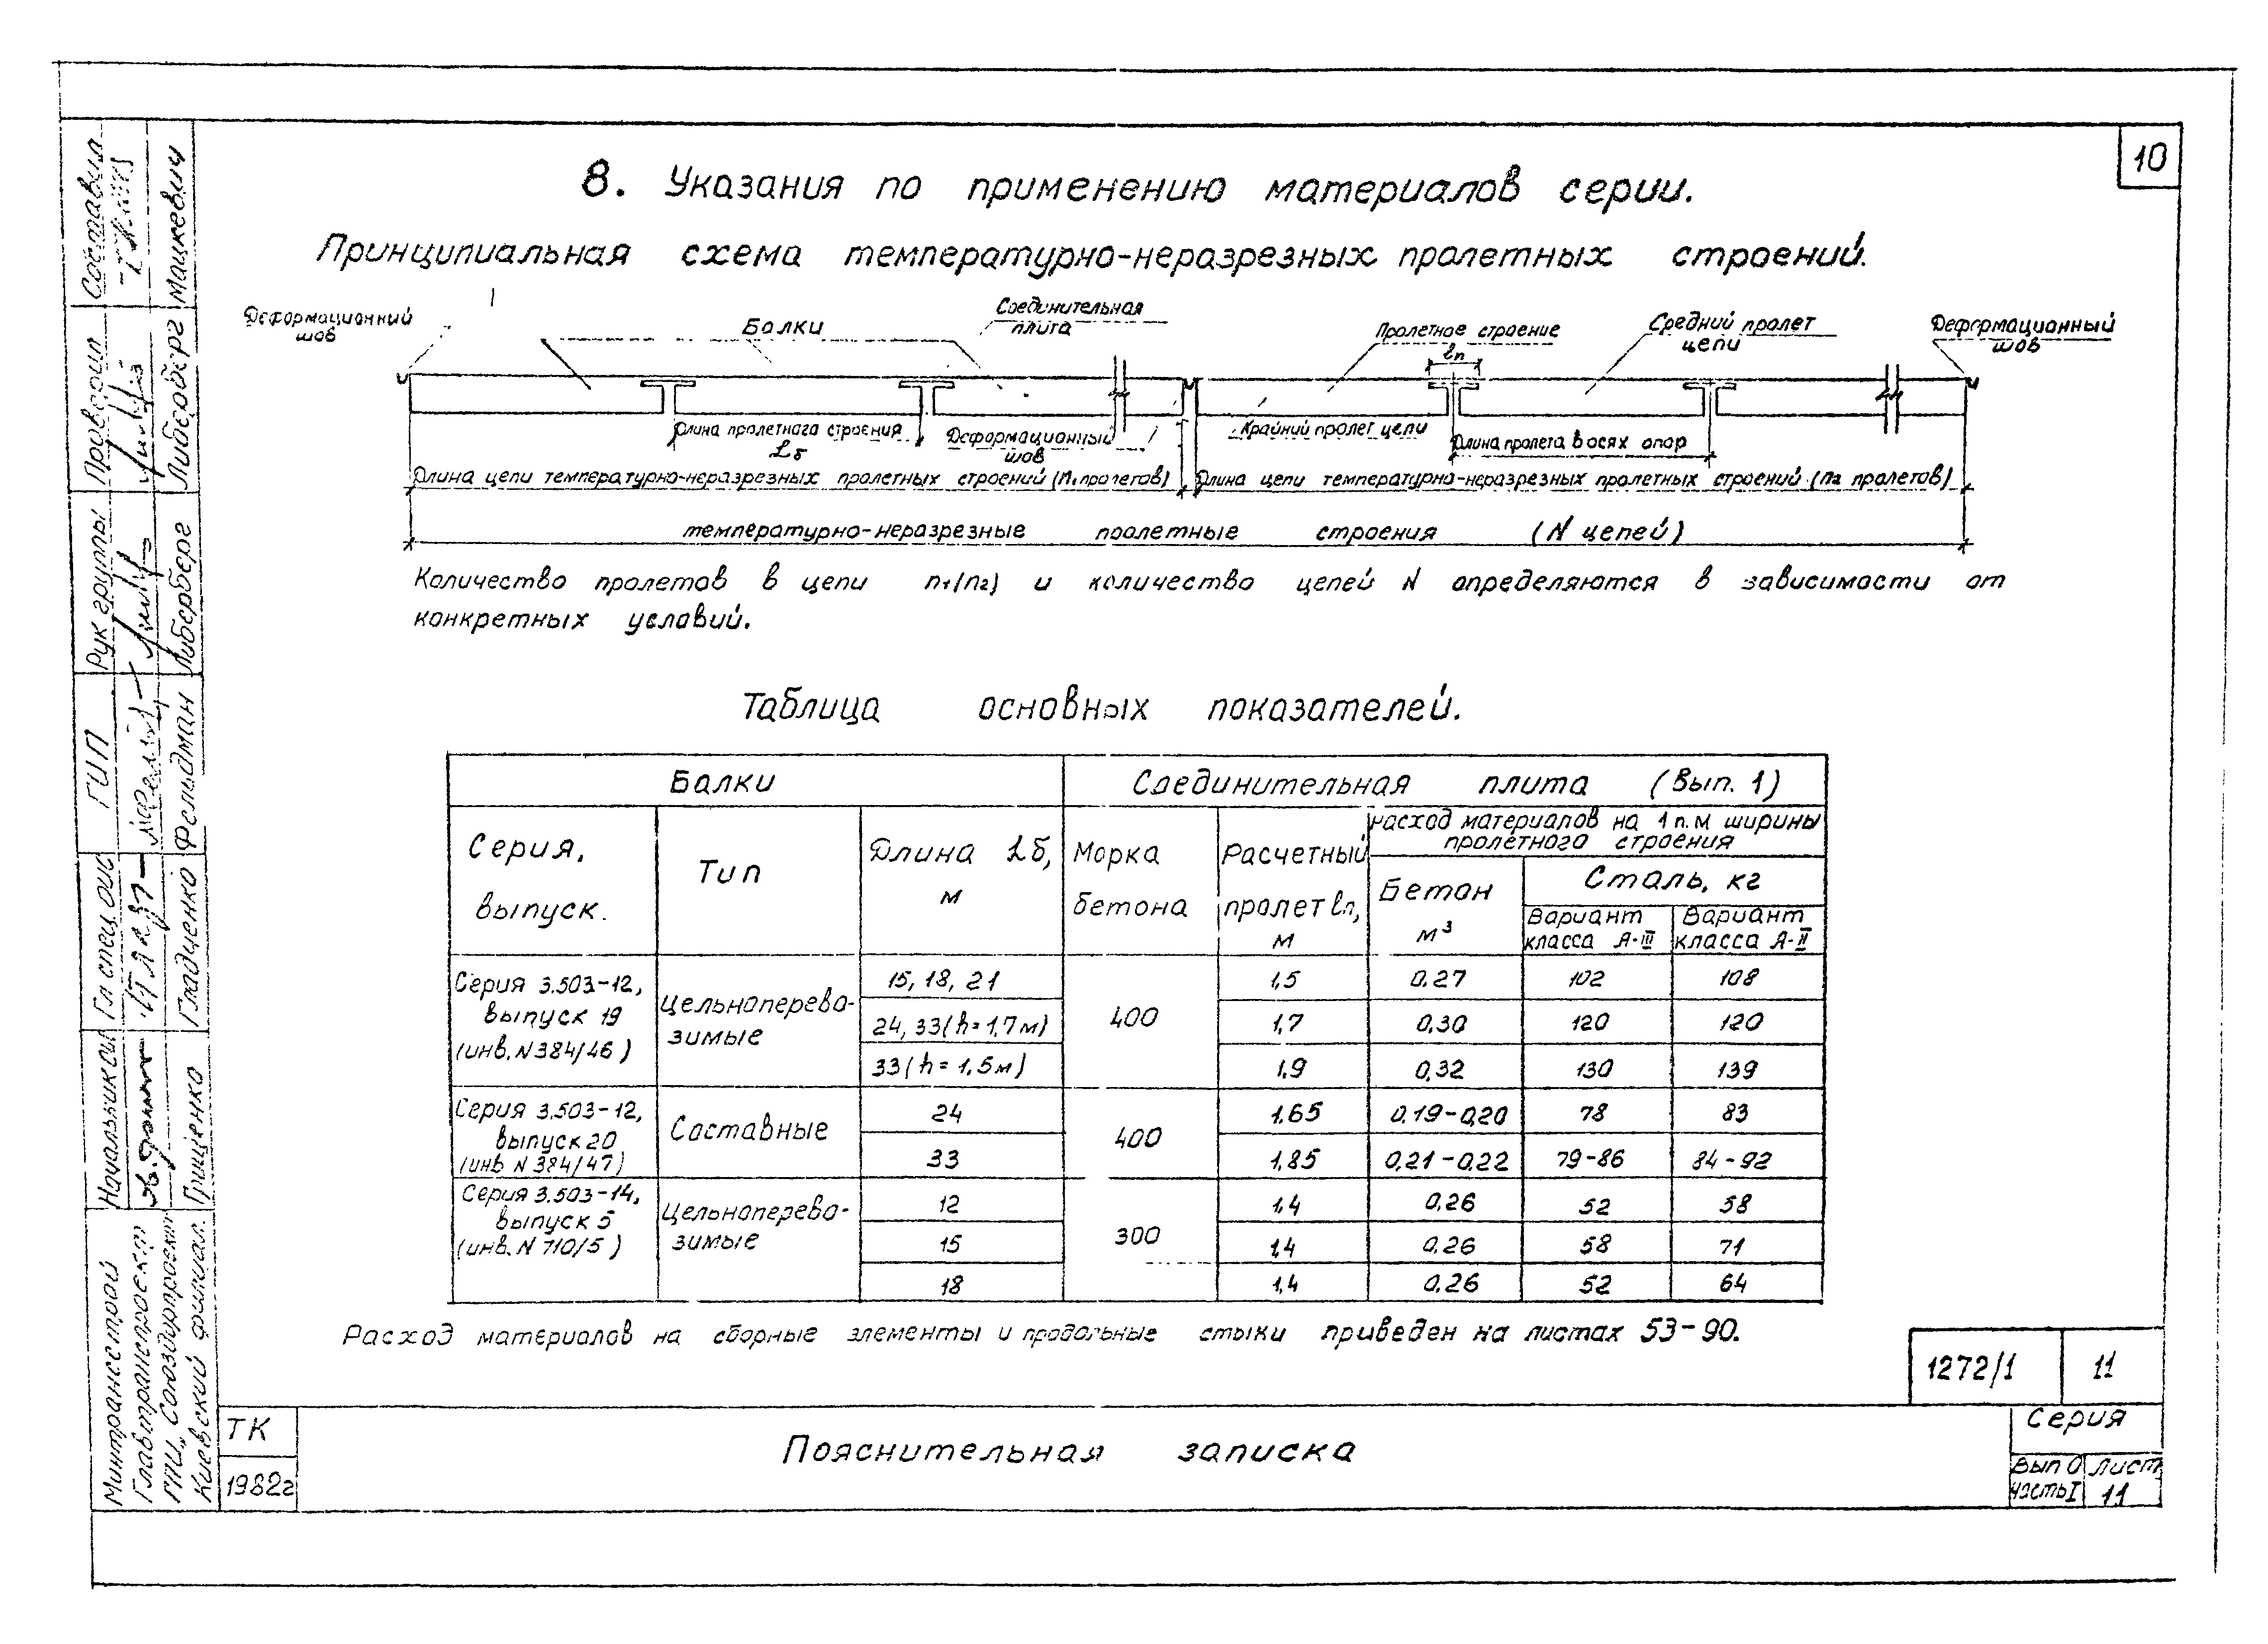 10
8. Указания по применению материалов серии.
Принципиальная схема температурно-неразрезных пролетных строений.
Деформационный
шов
Балки
Соединительная
плита
Пролетное строение
ℓп
Средний пролет
цепи
Деформационный
шов
Длина пролетного строения
Lб
Деформационный
шов
Крайний пролет цепи
Длина пролета в осях опор
Длина цепи температурно-неразрезных пролетных строений (n₁ пролетов)
Длина цепи температурно-неразрезных пролетных строений (n₂ пролетов)
температурно-неразрезные пролетные строения (N цепей)
Количество пролетов в цепи n₁(n₂) и количество цепей N определяются в зависимости от
конкретных условий.
Таблица основных показателей.
Балки
Соединительная плита (Вып. 1)
Серия,
выпуск.
Тип
Длина Lб,
м
Морка
бетона
Расчетный
пролет ℓп,
м
расход материалов на 1 п.м ширины
пролетного строения
Бетон
м³
Сталь, кг
Вариант
класса А-III
Вариант
класса А-II
Серия 3.503-12,
выпуск 19
(инв. N 384/46)
Цельноперево-
зимые
15, 18, 21
400
1,5
0,27
102
108
24, 33 (h = 1,7 м)
1,7
0,30
120
120
33 (h = 1,5 м)
1,9
0,32
130
139
Серия 3.503-12,
выпуск 20
(инв N 384/47)
Составные
24
400
1,65
0,19-0,20
78
83
33
1,85
0,21-0,22
79-86
84-92
Серия 3.503-14,
выпуск 5
(инв. N 710/5)
Цельноперево-
зимые
12
300
1,4
0,26
52
58
15
1,4
0,26
58
71
18
1,4
0,26
52
64
Расход материалов на сборные элементы и продольные стыки приведен на листах 53-90.
1272/1
11
ТК
1982г
Пояснительная записка
Серия
Вып 0
часть I
Лист
11
Составил
Мацкевич
Проверил
Либерберг
Рук группы
Либерберг
ГИП
Фельдман
Гл спец. ОИС
Гладченко
Начальник ОИС
Грищенко
Минтрансстрой
Главтранспроект
ГПИ „Союздорпроект
Киевский филиал.